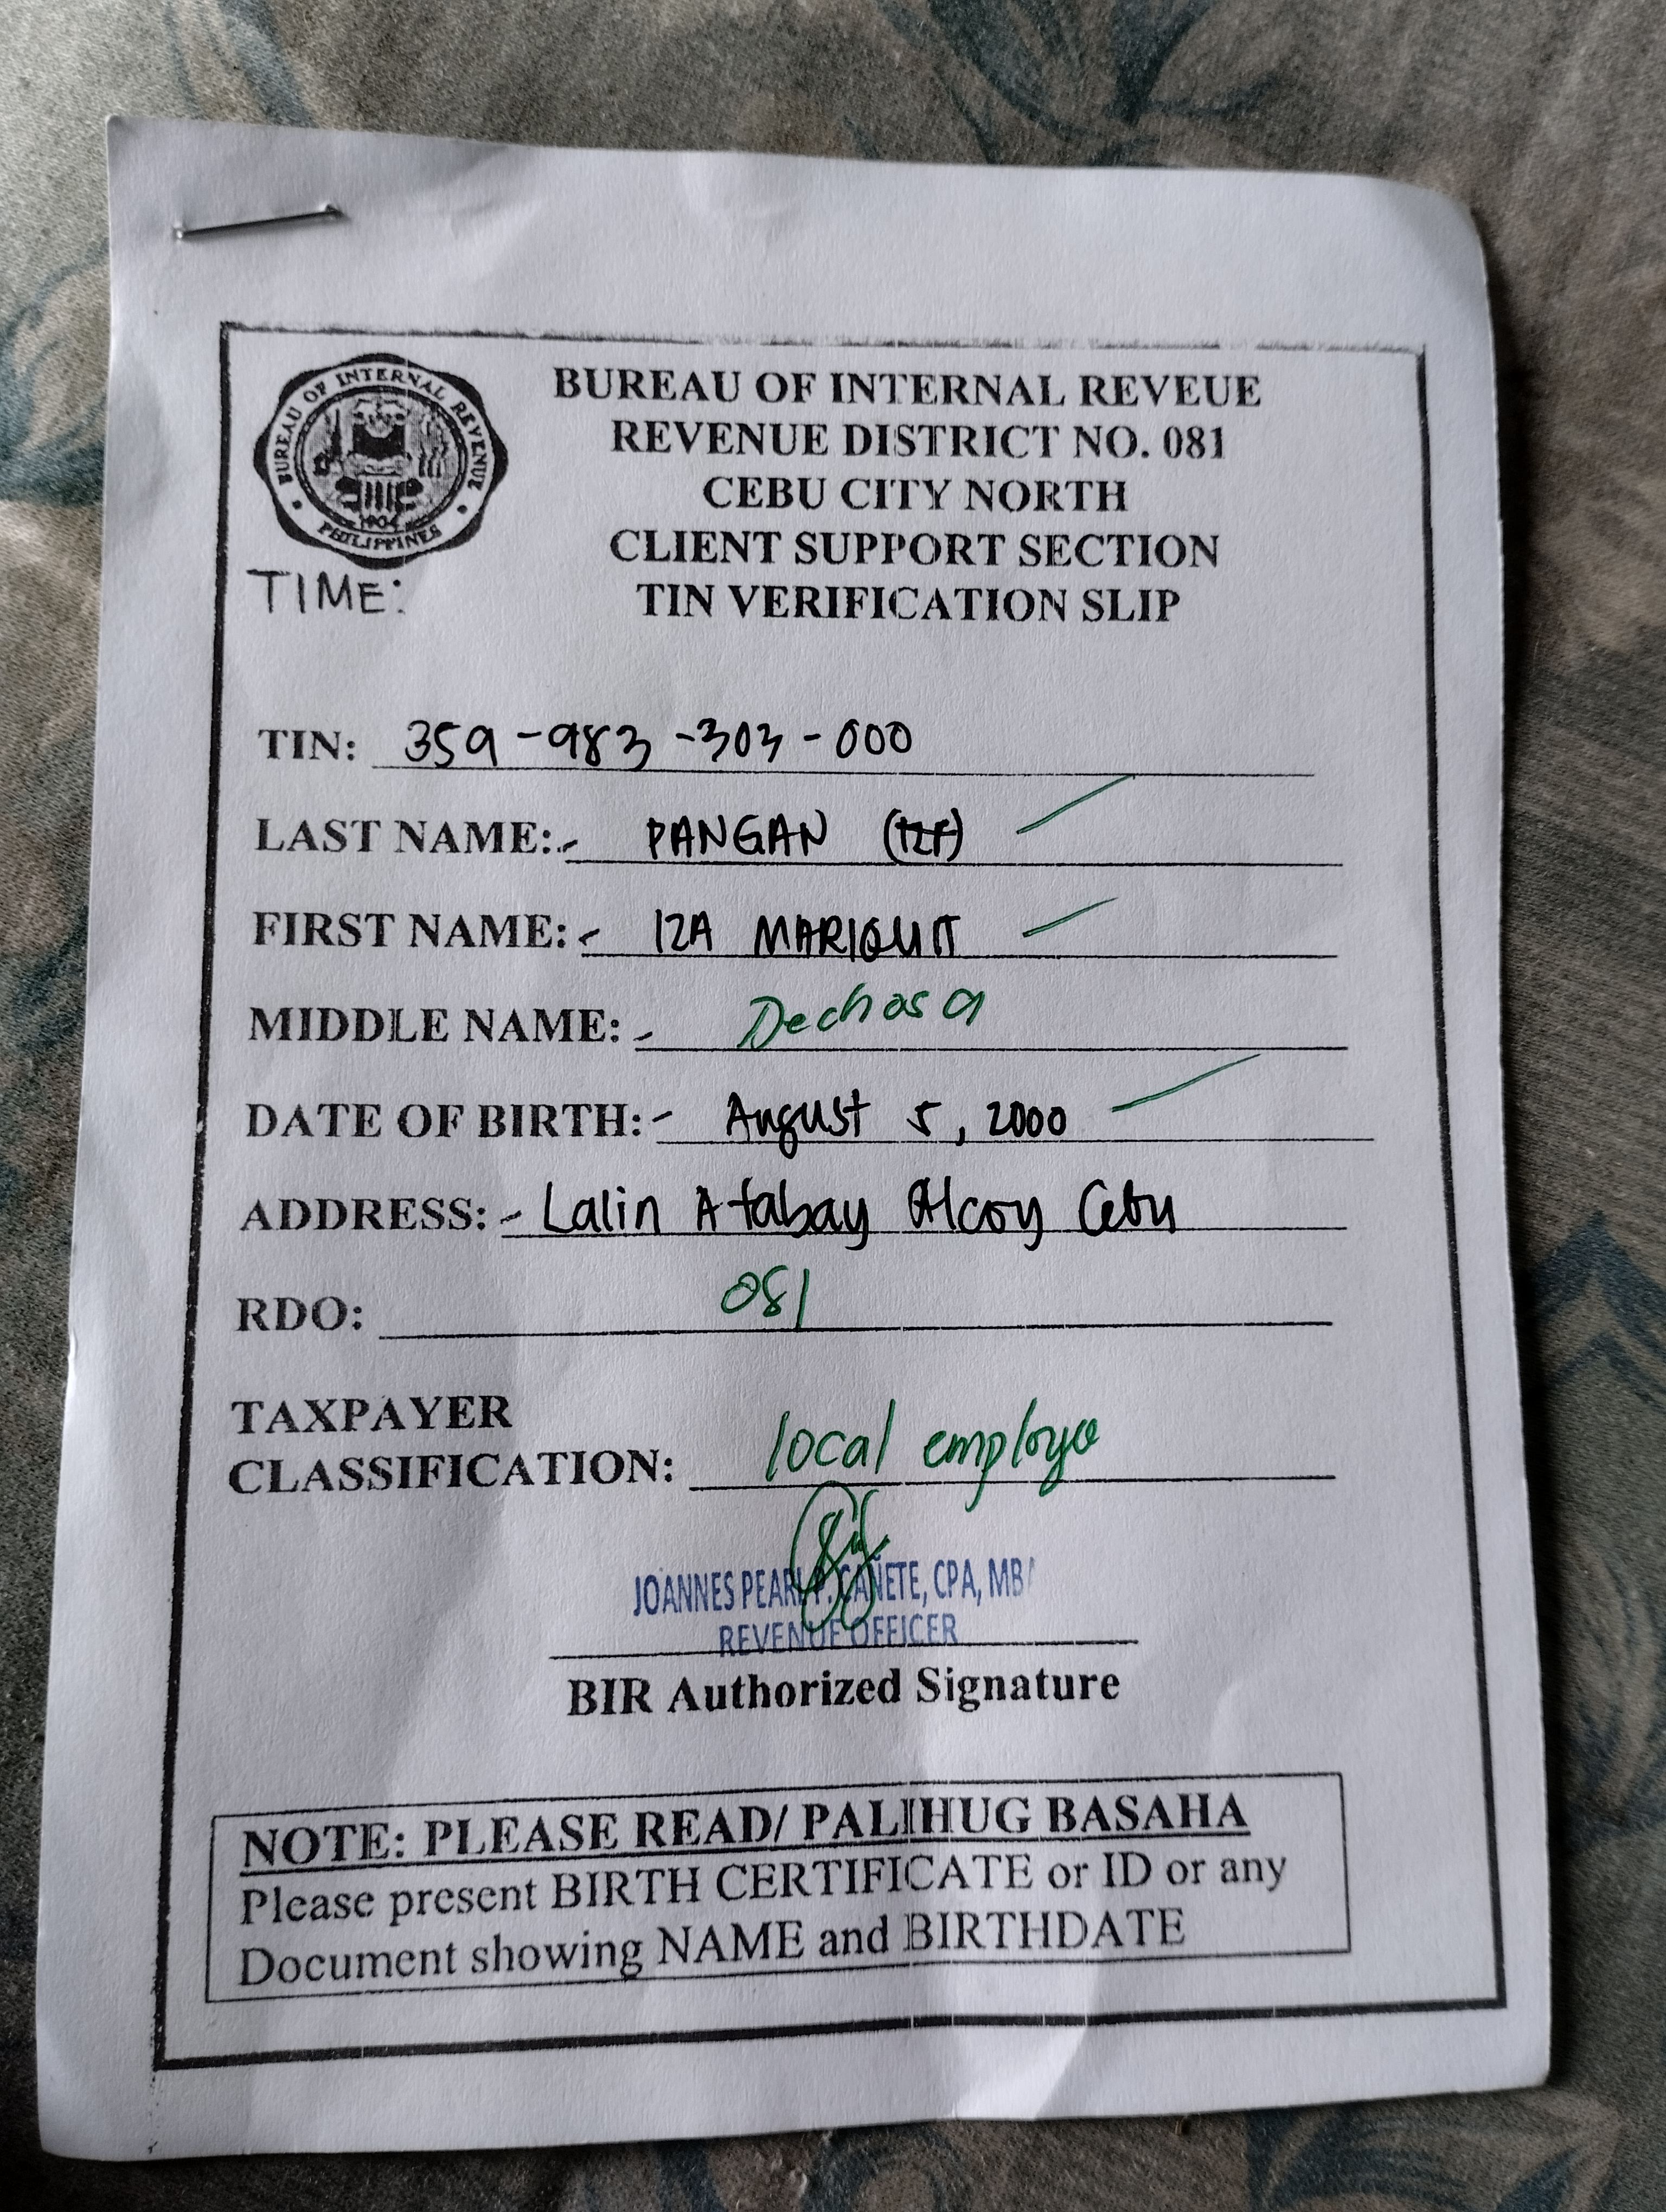 BUREAU OF INTERNAL REVENUE
1904
PHILIPPINES
BUREAU OF INTERNAL REVEUE
REVENUE DISTRICT NO. 081
CEBU CITY NORTH
CLIENT SUPPORT SECTION
TIN VERIFICATION SLIP
TIME:
TIN: 359-983-303-000
LAST NAME:- PANGAN
FIRST NAME:- IZA MARIQUIT
MIDDLE NAME:- Dechosa
DATE OF BIRTH:- August 5, 2000
ADDRESS:- Lalin Atabay Alcoy Cebu
RDO: 081
TAXPAYER
CLASSIFICATION: local employe
JOANNES PEARL P. CAÑETE, CPA, MBA
REVENUE OFFICER
BIR Authorized Signature
NOTE: PLEASE READ/ PALIHUG BASAHA
Please present BIRTH CERTIFICATE or ID or any
Document showing NAME and BIRTHDATE